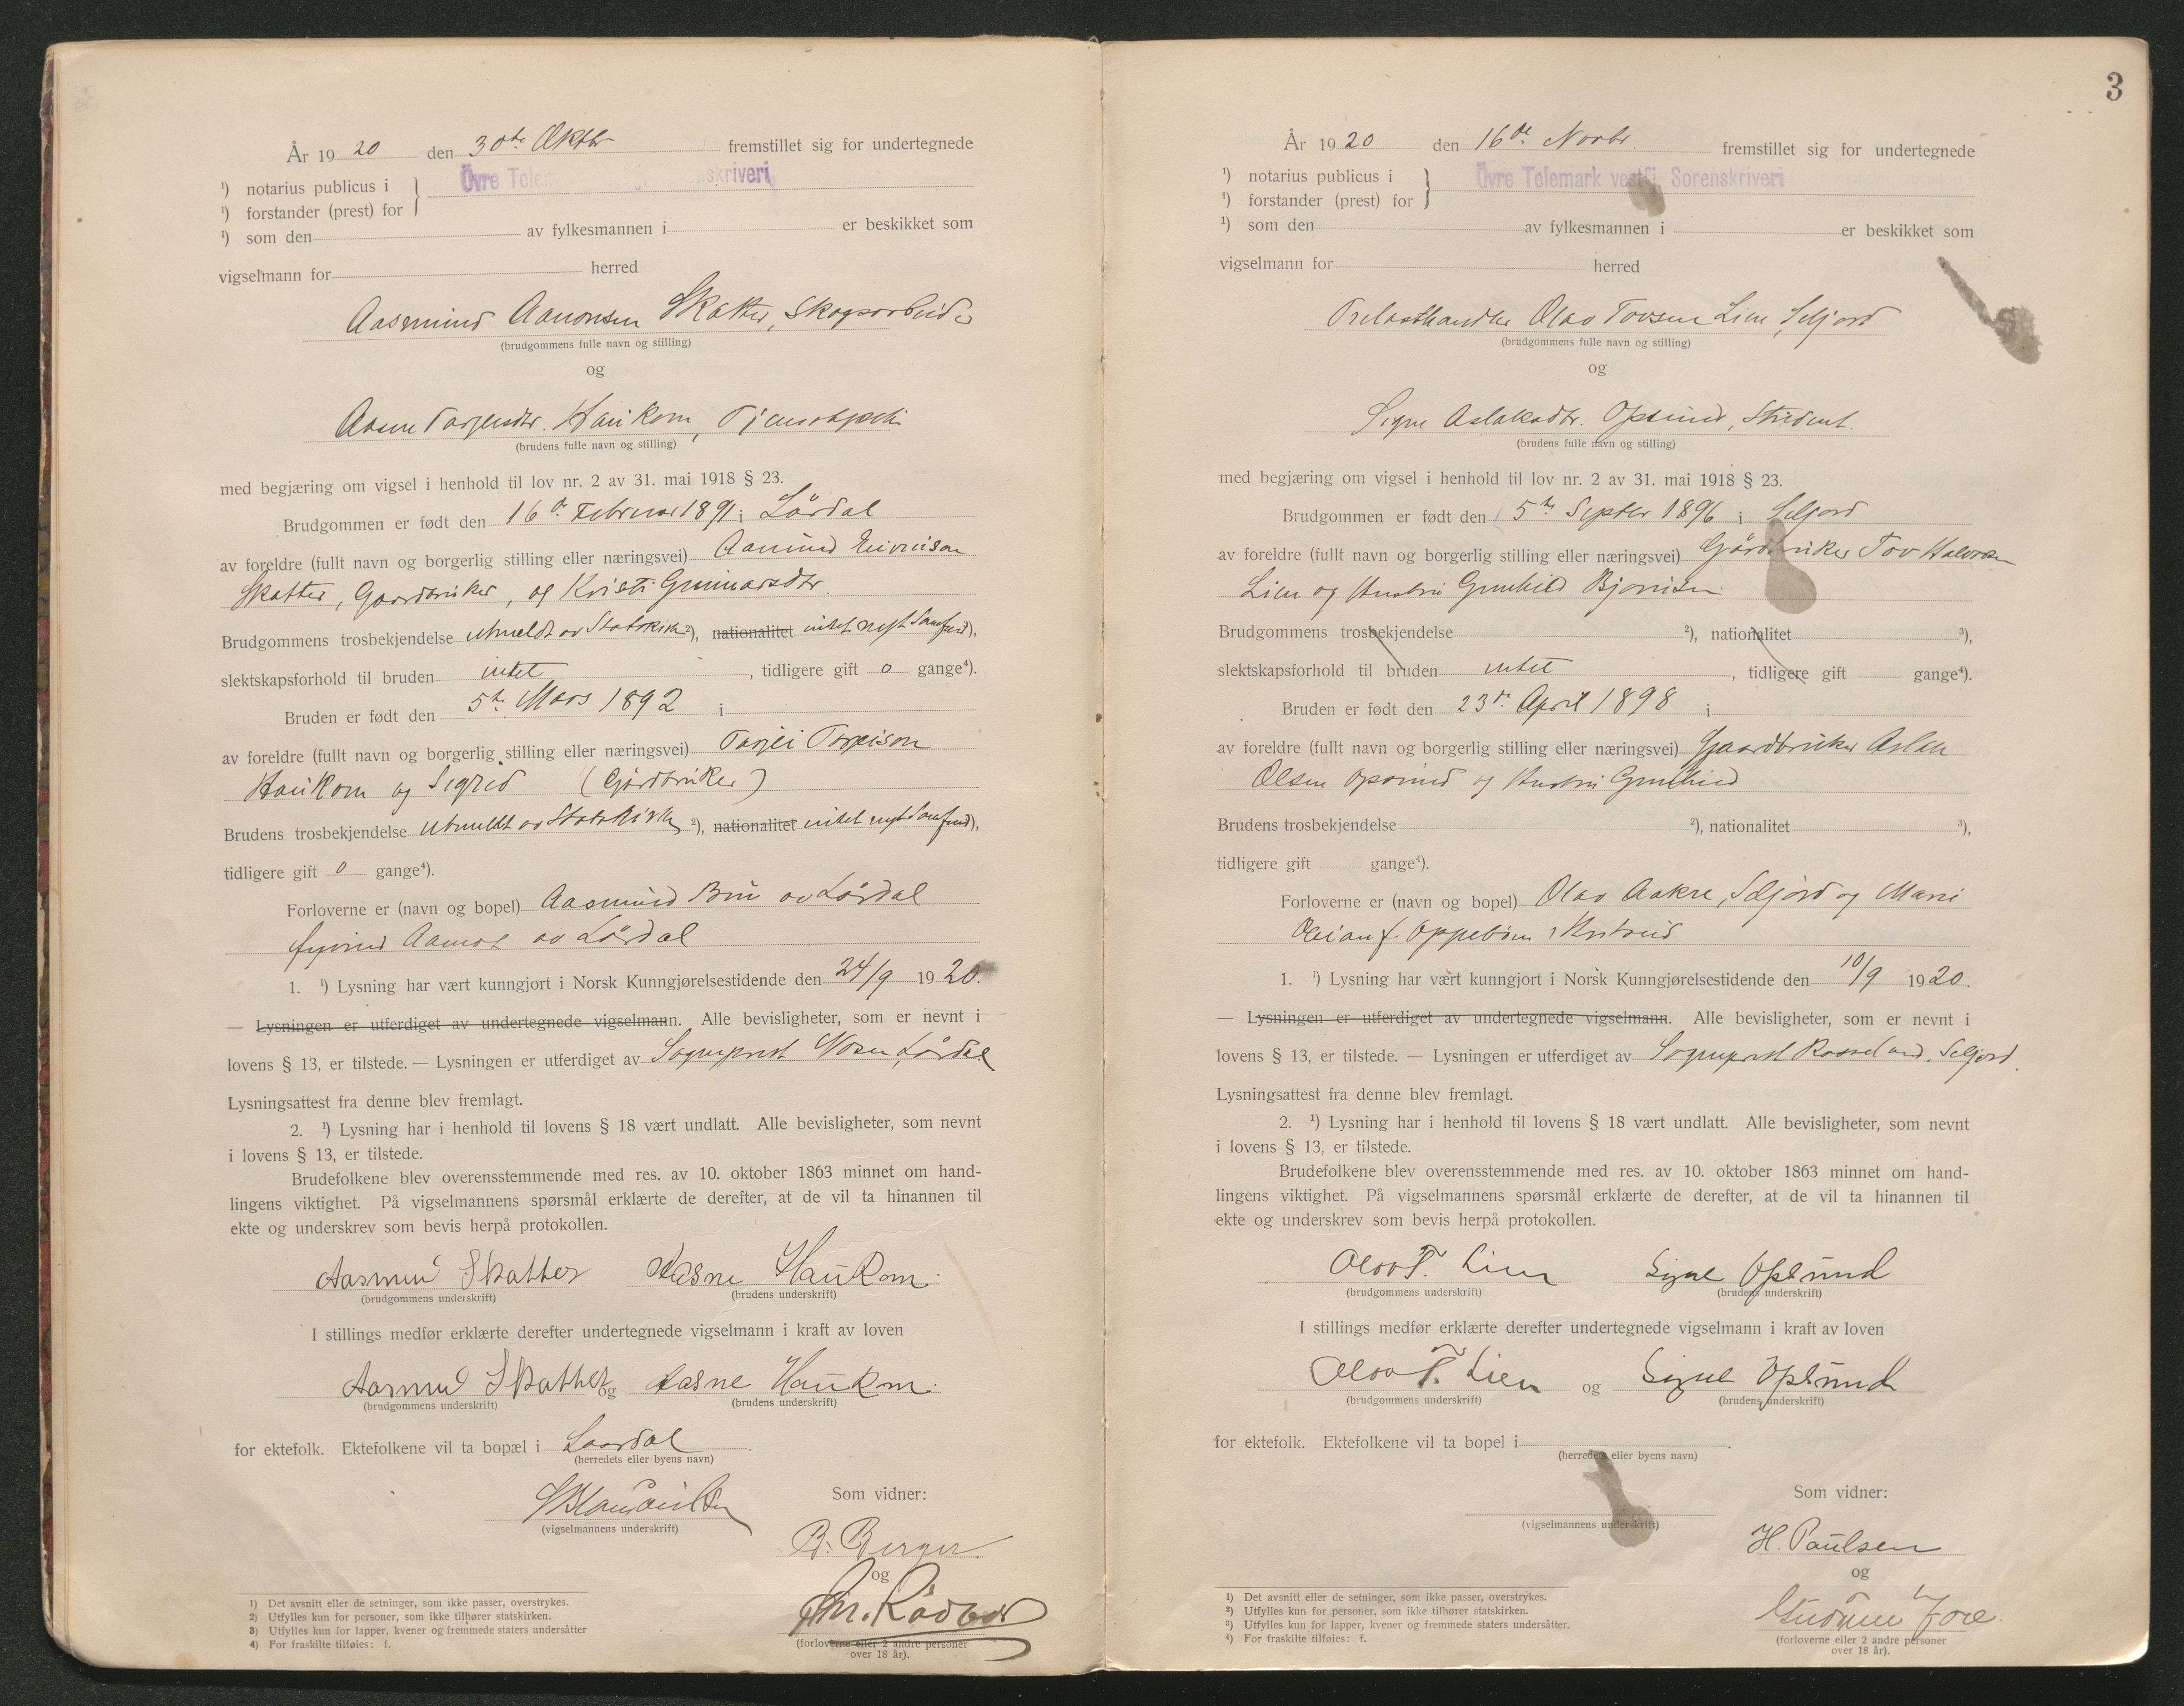 År 1920 den 30te Oktbr fremstillet sig for undertegnede
¹) notarius publicus i Övre Telem skriveri
¹) forstander (prest) for
¹) som den av fylkesmannen i er beskikket som
vigselmann for herred
Aasmund Aanonsen Skatter, Skogsarbeider
(brudgommens fulle navn og stilling)
og
Aasne Tarjeisdtr. Haukom,
(brudens fulle navn og stilling)
med begjæring om vigsel i henhold til lov nr. 2 av 31. mai 1918 § 23.
Brudgommen er født den 16de Februar 1891 i Lårdal
av foreldre (fullt navn og borgerlig stilling eller næringsvei) Aanund Eivindson
Skatter, Gaardbruker, og Kristi Gunnarsdtr.
Brudgommens trosbekjendelse utmeldt av Statskirk ²), nationalitet intet nyt Samfund),
slektskapsforhold til bruden intet, tidligere gift 0 gange⁴).
Bruden er født den 5te Mars 1892 i
av foreldre (fullt navn og borgerlig stilling eller næringsvei) Tarjei Tarjeison
Haukom og Sigrid (Gårdbruker)
Brudens trosbekjendelse utmeldt av Statskirk ²), nationalitet intet nyt Samfund),
tidligere gift 0 gange⁴).
Forloverne er (navn og bopel) Aasmund Bru av Lårdal
Øyvind Aamot av Lårdal
1. ¹) Lysning har vært kunngjort i Norsk Kunngjørelsestidende den 24/9 1920.
— Lysningen er utferdiget av undertegnede vigselmann. Alle bevisligheter, som er nevnt i
lovens § 13, er tilstede. — Lysningen er utferdiget av Sogneprest Lårdal
Lysningsattest fra denne blev fremlagt.
2. ¹) Lysning har i henhold til lovens § 18 vært undlatt. Alle bevisligheter, som nevnt
i lovens § 13, er tilstede.
Brudefolkene blev overensstemmende med res. av 10. oktober 1863 minnet om hand-
lingens viktighet. På vigselmannens spørsmål erklærte de derefter, at de vil ta hinannen til
ekte og underskrev som bevis herpå protokollen.
Aasmund Skatter Aasne Haukom.
(brudgommens underskrift) (brudens underskrift)
I stillings medfør erklærte derefter undertegnede vigselmann i kraft av loven
Aasmund Skatter og Aasne Haukom.
(brudgommens underskrift) (brudens underskrift)
for ektefolk. Ektefolkene vil ta bopæl i Laardal.
(herredets eller byens navn)
(vigselmannens underskrift)
Som vidner:
B. Berger.
og
(forloverne eller 2 andre personer
over 18 år).
1) Det avsnitt eller de setninger, som ikke passer, overstrykes.
2) Utfylles kun for personer, som ikke tilhører statskirken.
3) Utfylles kun for lapper, kvener og fremmede staters undersåtter
4) For fraskilte tilføies: f.
3
År 1920 den 16de Novbr. fremstillet sig for undertegnede
¹) notarius publicus i Övre Telemark vestfj. Sorenskriveri
¹) forstander (prest) for
¹) som den av fylkesmannen i er beskikket som
vigselmann for herred
Trelasthandler Olav Tovsen Lien, Seljord
(brudgommens fulle navn og stilling)
og
Signe Aslaksdtr. Opsund, Student.
(brudens fulle navn og stilling)
med begjæring om vigsel i henhold til lov nr. 2 av 31. mai 1918 § 23.
Brudgommen er født den 5te Septbr 1896 i Seljord
av foreldre (fullt navn og borgerlig stilling eller næringsvei) Gårdbruker Tov Halvorsen
Lien og Hustru Gunhild Bjørnsdtr
Brudgommens trosbekjendelse ²), nationalitet ³),
slektskapsforhold til bruden intet, tidligere gift gange⁴).
Bruden er født den 23de April 1898 i
av foreldre (fullt navn og borgerlig stilling eller næringsvei) Gaardbruker Aslak
Olsen Opsund og Hustru Gunhild
Brudens trosbekjendelse ²), nationalitet ³),
tidligere gift gange⁴).
Forloverne er (navn og bopel) Olav Aakre, Seljord og Marie
f. Oppebøen i
1. ¹) Lysning har vært kunngjort i Norsk Kunngjørelsestidende den 10/9 1920.
— Lysningen er utferdiget av undertegnede vigselmann. Alle bevisligheter, som er nevnt i
lovens § 13, er tilstede. — Lysningen er utferdiget av Sogneprest Rosseland, Seljord.
Lysningsattest fra denne blev fremlagt.
2. ¹) Lysning har i henhold til lovens § 18 vært undlatt. Alle bevisligheter, som nevnt
i lovens § 13, er tilstede.
Brudefolkene blev overensstemmende med res. av 10. oktober 1863 minnet om hand-
lingens viktighet. På vigselmannens spørsmål erklærte de derefter, at de vil ta hinannen til
ekte og underskrev som bevis herpå protokollen.
Olav T. Lien Signe Opsund
(brudgommens underskrift) (brudens underskrift)
I stillings medfør erklærte derefter undertegnede vigselmann i kraft av loven
Olav T. Lien og Signe Opsund
(brudgommens underskrift) (brudens underskrift)
for ektefolk. Ektefolkene vil ta bopel i .
(herredets eller byens navn)
(vigselmannens underskrift)
Som vidner:
H. Paulsen
og
(forloverne eller 2 andre personer
over 18 år).
1) Det avsnitt eller de setninger, som ikke passer, overstrykes.
²) Utfylles kun for personer, som ikke tilhører statskirken.
³) Utfylles kun for lapper, kvener og fremmede staters undersåtter.
⁴) For fraskilte tilføies: f.